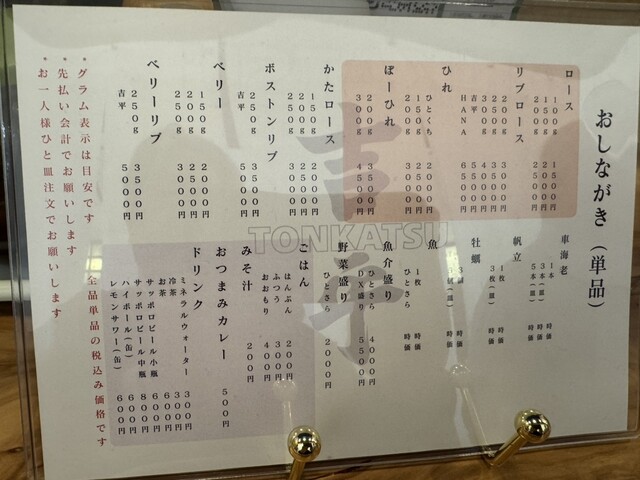 おしながき（単品）
ロース
100g 1500円
150g 2000円
200g 2500円
リブロース
200g 3000円
250g 3500円
300g 4000円
吉平 5000円
HANA 6500円
ひれ
ひとくち 2000円
150g 2500円
200g 3000円
ぽーひれ
200g 3500円
300g 4500円
かたロース
150g 2000円
200g 2500円
250g 3000円
ボストンリブ
250g 3500円
吉平 5000円
ベリー
150g 2000円
200g
250g 3000円
ベリーリブ
250g 3500円
吉平 5000円
車海老
1本 時価
3本（皿） 時価
5本（皿） 時価
帆立
1枚 時価
3枚（皿） 時価
牡蠣
時価
時価
魚
1枚 時価
ひとさら 時価
魚介盛り
ひとさら 4000円
DX盛り 5500円
野菜盛り
ひとさら 2000円
ごはん
はんぶん 200円
ふつう 300円
おおもり 400円
みそ汁 200円
おつまみカレー 500円
ドリンク
ミネラルウォーター 300円
冷茶 300円
お茶
サッポロビール小瓶 600円
サッポロビール中瓶 800円
ハイボール（缶） 600円
レモンサワー（缶） 600円
全品単品の税込み価格です
*グラム表示は目安です
*先払い会計でお願いします
*お一人様ひと皿注文でお願いします
吉平
TONKATSU